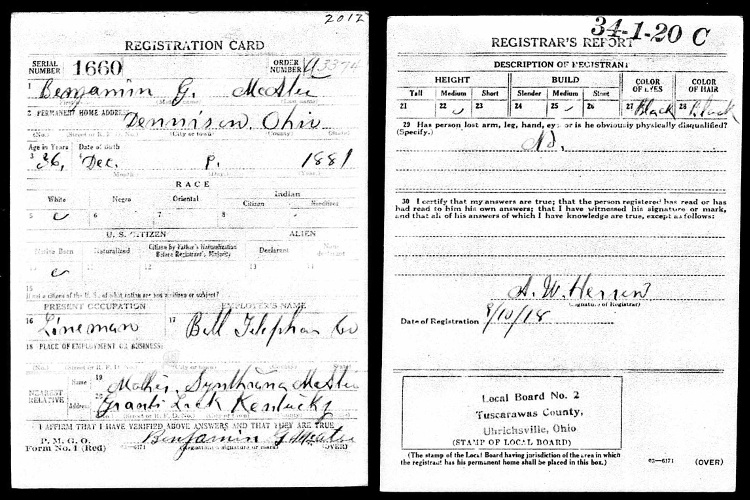 2012
REGISTRATION CARD
SERIAL NUMBER 1660 ORDER NUMBER A3374
1 Benjamin G. McAtee
(First name) (Middle name) (Last name)
2 PERMANENT HOME ADDRESS:
Dennison Ohio
(No.) (Street or R. F. D. No.) (City or town) (County) (State)
Age in Years Date of Birth
3 36, Dec. 1881
(Month) (Day) (Year)
RACE
White Negro Oriental Indian
Citizen Noncitizen
5 6 7 8
U. S. CITIZEN ALIEN
Native Born Naturalized Citizen by Father's Naturalization Before Registrant's Majority Declarant Non-declarant
12 13
15
If not a citizen of the U. S., of what nation are you a citizen or subject?
PRESENT OCCUPATION EMPLOYER'S NAME
16 Lineman 17 Bell Telephon Co
18 PLACE OF EMPLOYMENT OR BUSINESS:
(No.) (Street or R. F. D. No.) (City or town) (County) (State)
NEAREST RELATIVE Name 19 Mother. McAtee
Address 20 Grants Lick Kentucky
(No.) (Street or R. F. D. No.) (City or town) (County) (State)
I AFFIRM THAT I HAVE VERIFIED ABOVE ANSWERS AND THAT THEY ARE TRUE
P. M. G. O.
Form No. 1 (Red) Benjamin G McAtee
(Registrant's signature or mark) (OVER)
34-1-20 C
REGISTRAR'S REPORT
DESCRIPTION OF REGISTRANT
HEIGHT BUILD COLOR OF EYES COLOR OF HAIR
Tall Medium Short Slender Medium Stout
21 22 23 24 25 26 27 Black 28 Black
29 Has person lost arm, leg, hand, eye, or is he obviously physically disqualified?
(Specify.) No.
30 I certify that my answers are true; that the person registered has read or has
had read to him his own answers; that I have witnessed his signature or mark,
and that all of his answers of which I have knowledge are true, except as follows:
A. W. Herren
(Signature of Registrar)
Date of Registration 9/10/18
Local Board No. 2
Tuscarawas County,
Uhrichsville, Ohio
(STAMP OF LOCAL BOARD)
(The stamp of the Local Board having jurisdiction of the area in which
the registrant has his permanent home shall be placed in this box.) 03-6171 (OVER)